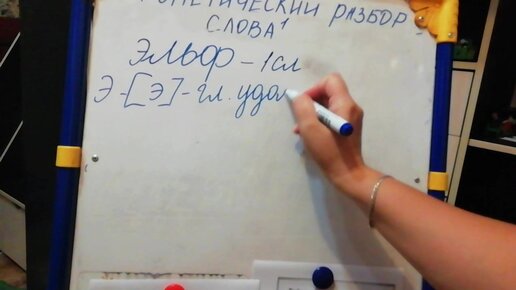 ФОНЕТИЧЕСКИЙ РАЗБОР
СЛОВА¹
ЭЛЬФ - 1 сл
Э - [Э] - гл. удар